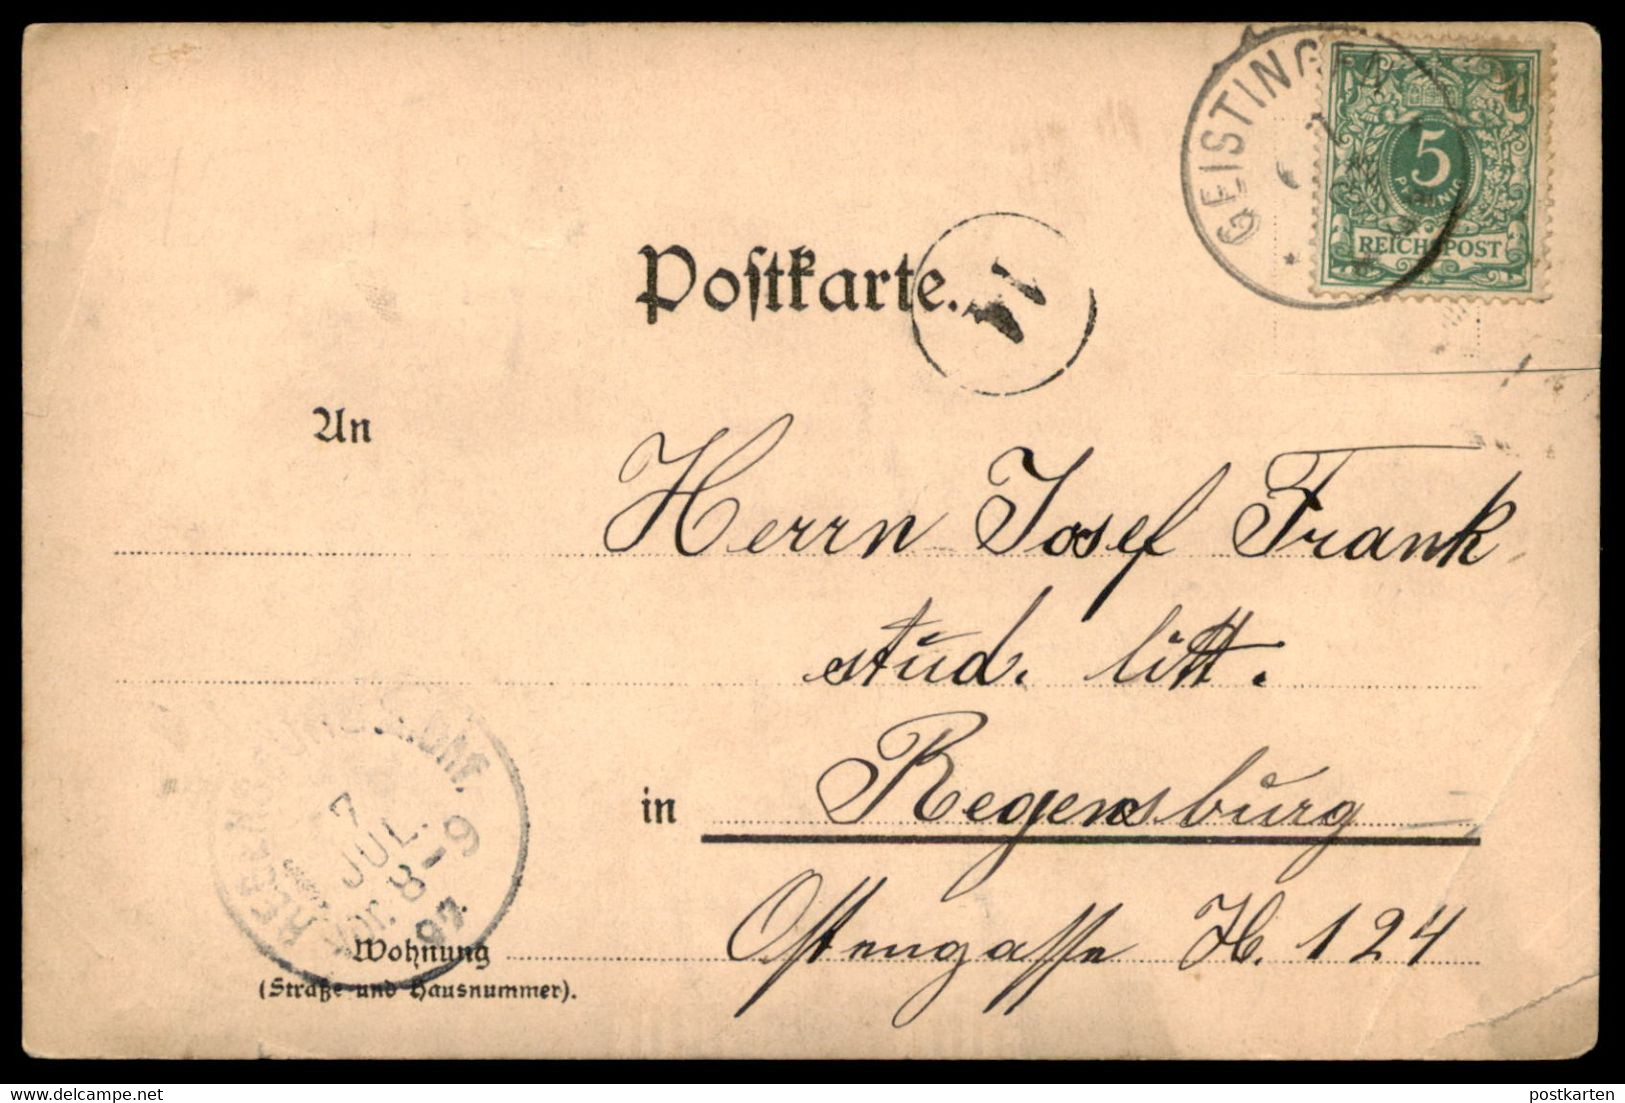 GEISTINGEN
5
PFENNIG
REICHSPOST
Postkarte.
An
Herrn Josef Frank
stud. litt.
in Regensburg
7
JUL.
8-9
Wohnung Ostengasse H. 124
(Straße und Hausnummer).
postkarten
delcampe.net